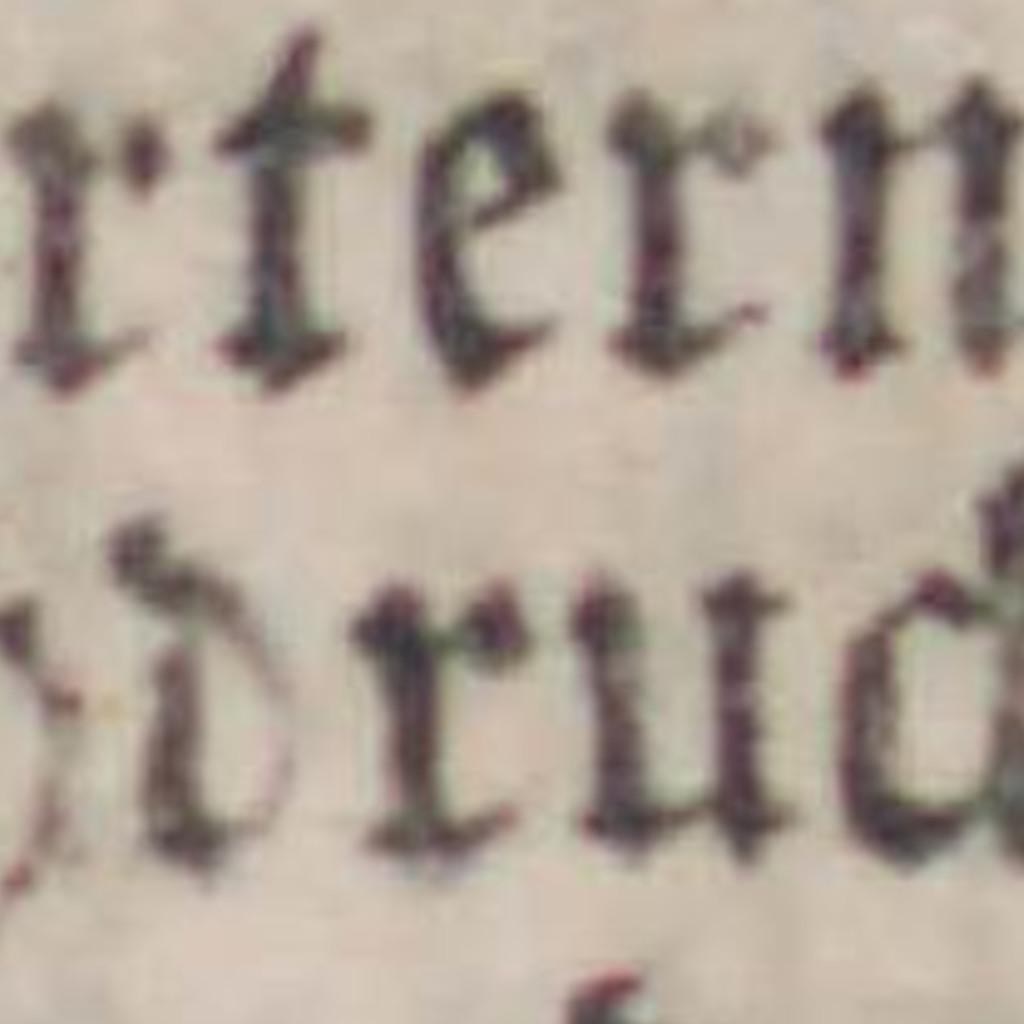 rtern
drud